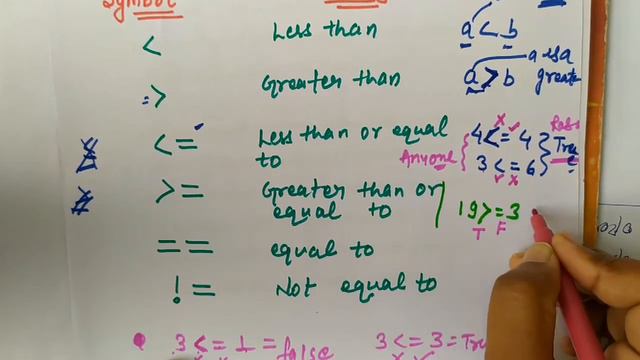 Symbol
< Less than a < b
a is a
> Greater than a > b greater
<= Less than or equal to 4 <= 4 True
Anyone 3 <= 6
>= Greater than or equal to 19 >= 3
T F
== equal to
!= Not equal to
3 <= 1 = false 3 <= 3 = Tru